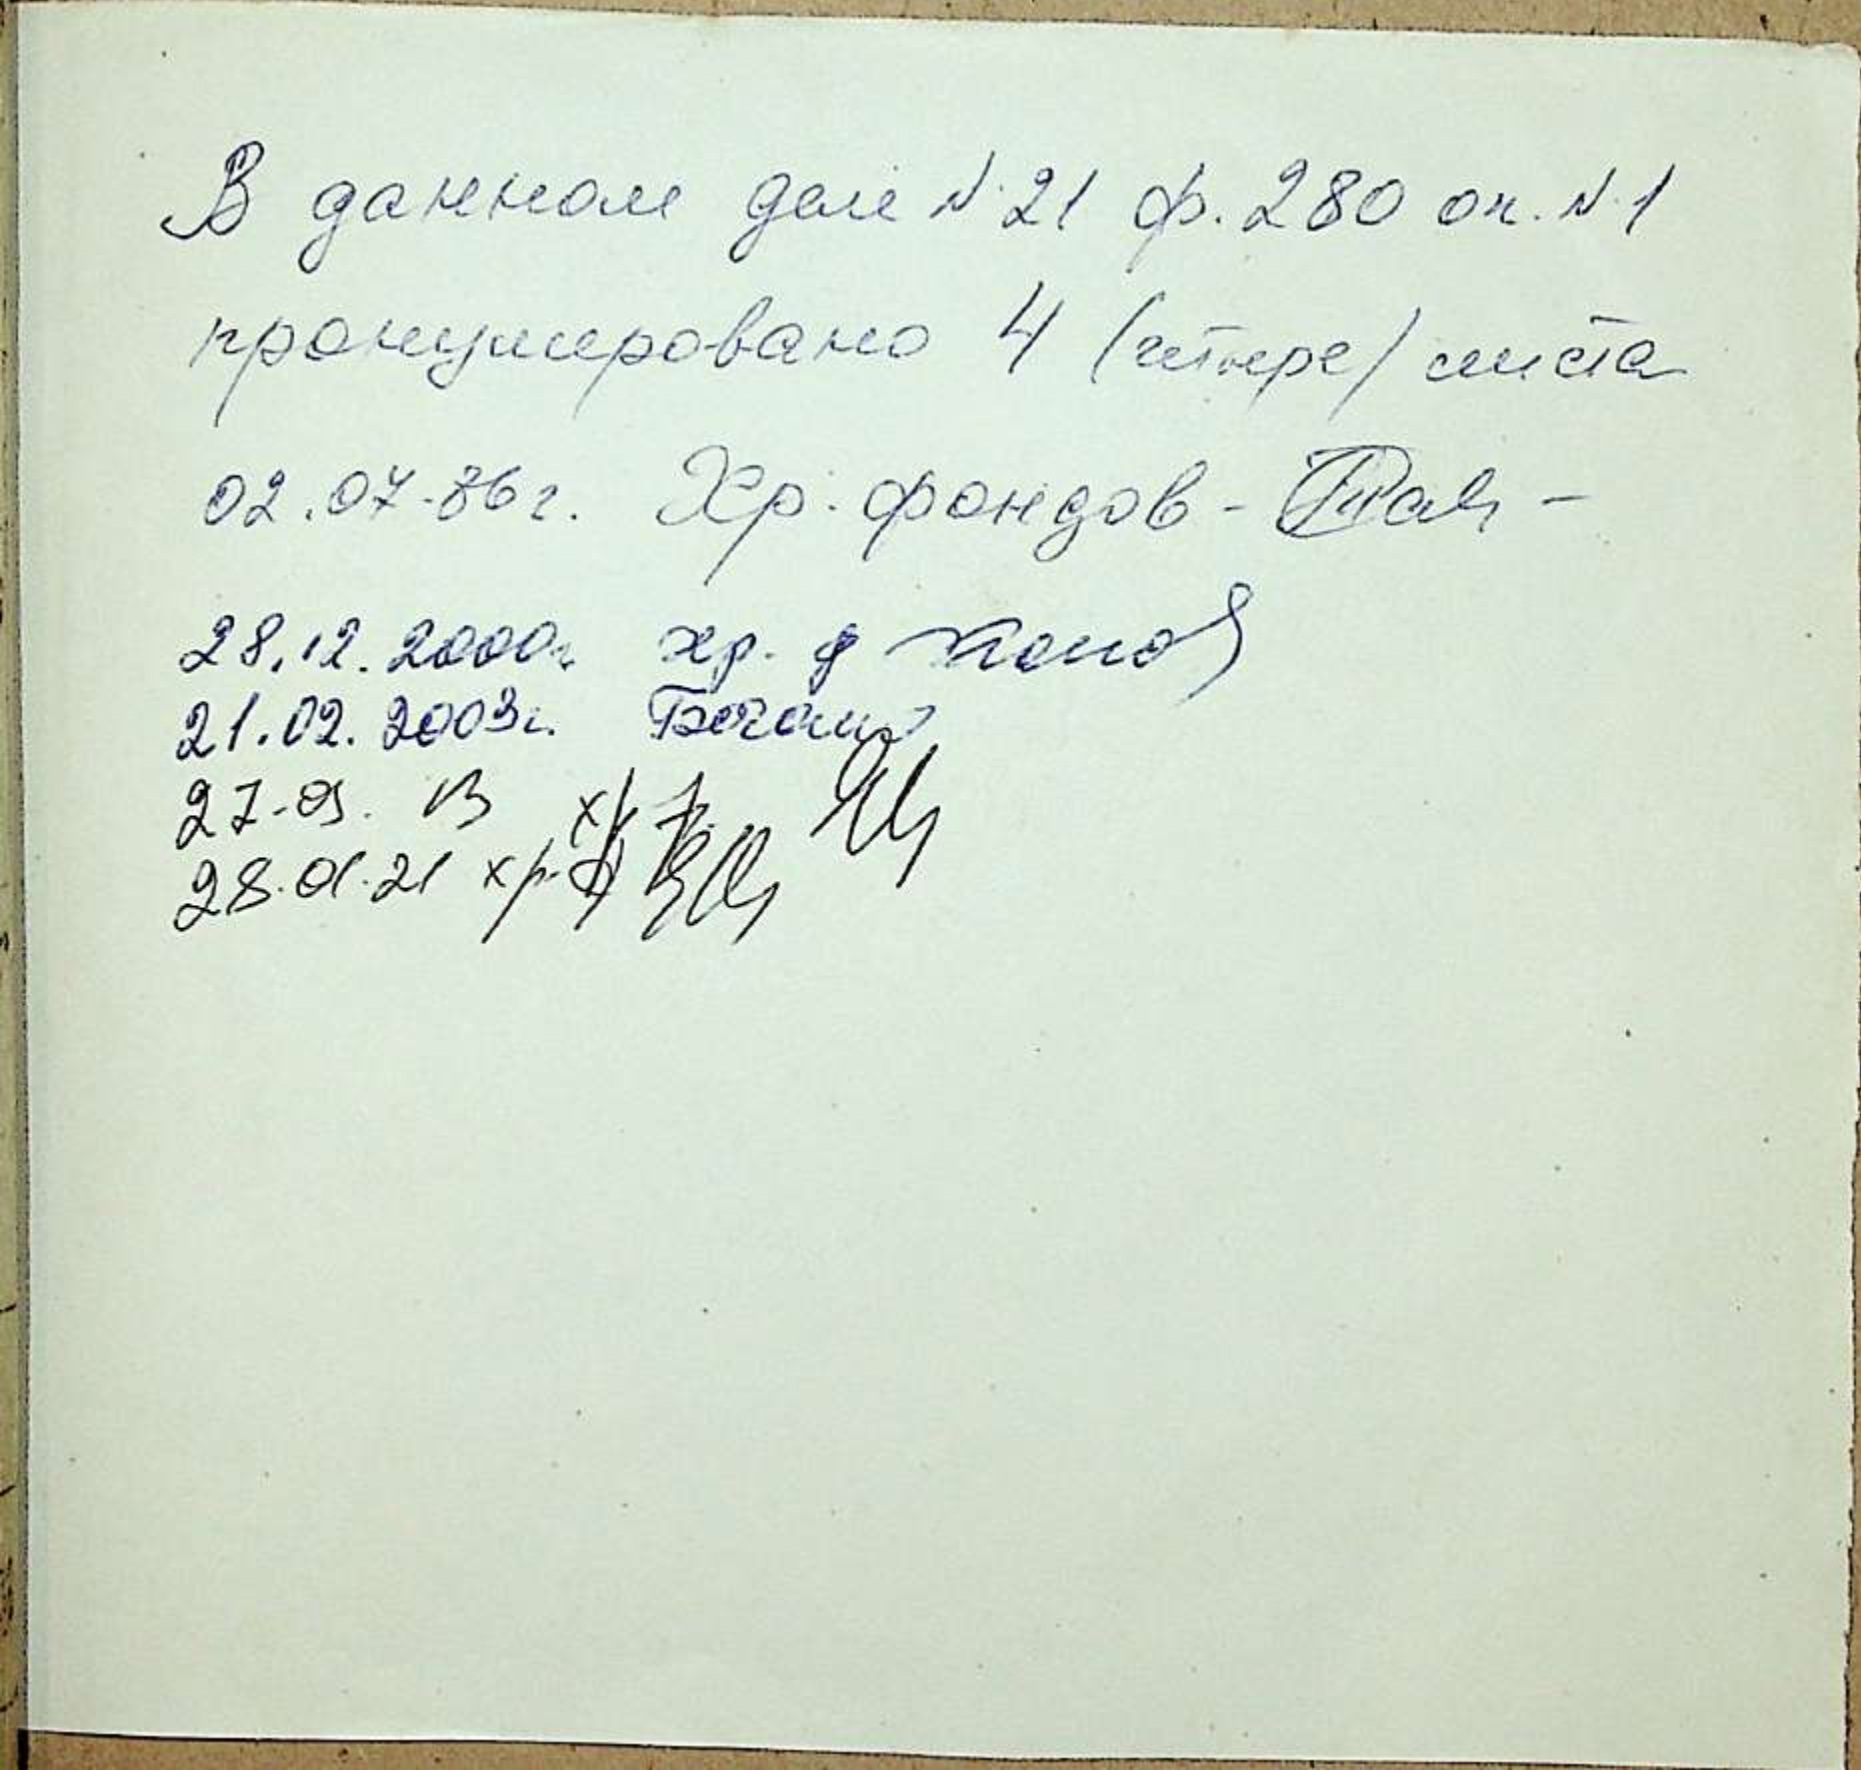 В данном деле N 21 ф. 280 оп. N 1
пронумеровано 4 (четыре) листа
02.07.86 г. Хр. фондов -
28.12.2000г хр. ф
21.02.2003г.
27.03. 13 хр
28.01.21 хр. ф